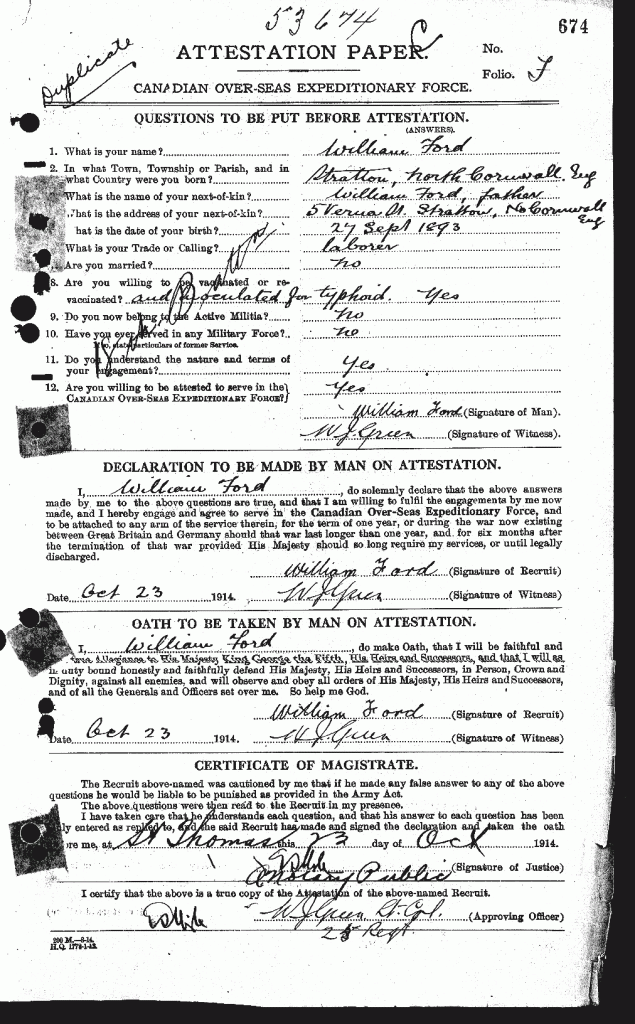 53674
674
Duplicate
ATTESTATION PAPER.
No.
Folio. F
CANADIAN OVER-SEAS EXPEDITIONARY FORCE.
QUESTIONS TO BE PUT BEFORE ATTESTATION.
(ANSWERS).
1. What is your name? William Ford
2. In what Town, Township or Parish, and in
what Country were you born? Stratton, North Cornwall. Eng
What is the name of your next-of-kin? William Ford, father
What is the address of your next-of-kin? 5 St. Stratton, No Cornwall
Eng
hat is the date of your birth? 27 Sept 1893
What is your Trade or Calling? laborer
Are you married? no
8. Are you willing to be vaccinated or re-
vaccinated? and inoculated for typhoid. Yes
9. Do you now belong to the Active Militia? no
10. Have you ever served in any Military Force? no
If so, state particulars of former Service.
11. Do you understand the nature and terms of
your engagement? Yes
12. Are you willing to be attested to serve in the
CANADIAN OVER-SEAS EXPEDITIONARY FORCE? Yes
William Ford (Signature of Man).
W J Green (Signature of Witness).
DECLARATION TO BE MADE BY MAN ON ATTESTATION.
I, William Ford, do solemnly declare that the above answers
made by me to the above questions are true, and that I am willing to fulfil the engagements by me now
made, and I hereby engage and agree to serve in the Canadian Over-Seas Expeditionary Force, and
to be attached to any arm of the service therein, for the term of one year, or during the war now existing
between Great Britain and Germany should that war last longer than one year, and for six months after
the termination of that war provided His Majesty should so long require my services, or until legally
discharged.
William Ford (Signature of Recruit)
Date Oct 23 1914. W J Green (Signature of Witness)
OATH TO BE TAKEN BY MAN ON ATTESTATION.
I, William Ford, do make Oath, that I will be faithful and
true Allegiance to His Majesty King George the Fifth, His Heirs and Successors, and that I will as
in duty bound honestly and faithfully defend His Majesty, His Heirs and Successors, in Person, Crown and
Dignity, against all enemies, and will observe and obey all orders of His Majesty, His Heirs and Successors,
and of all the Generals and Officers set over me. So help me God.
William Ford (Signature of Recruit)
Date Oct 23 1914. W J Green (Signature of Witness)
CERTIFICATE OF MAGISTRATE.
The Recruit above-named was cautioned by me that if he made any false answer to any of the above
questions he would be liable to be punished as provided in the Army Act.
The above questions were then read to the Recruit in my presence.
I have taken care that he understands each question, and that his answer to each question has been
ly entered as replied to, and the said Recruit has made and signed the declaration and taken the oath
ore me, at St Thomas this 23 day of Oct 1914.
(Signature of Justice)
a Notary Public
I certify that the above is a true copy of the Attestation of the above-named Recruit.
W J Green Lt. Col. (Approving Officer)
25 Regt
200 M.—8-14.
H.Q. 1772-1-13.